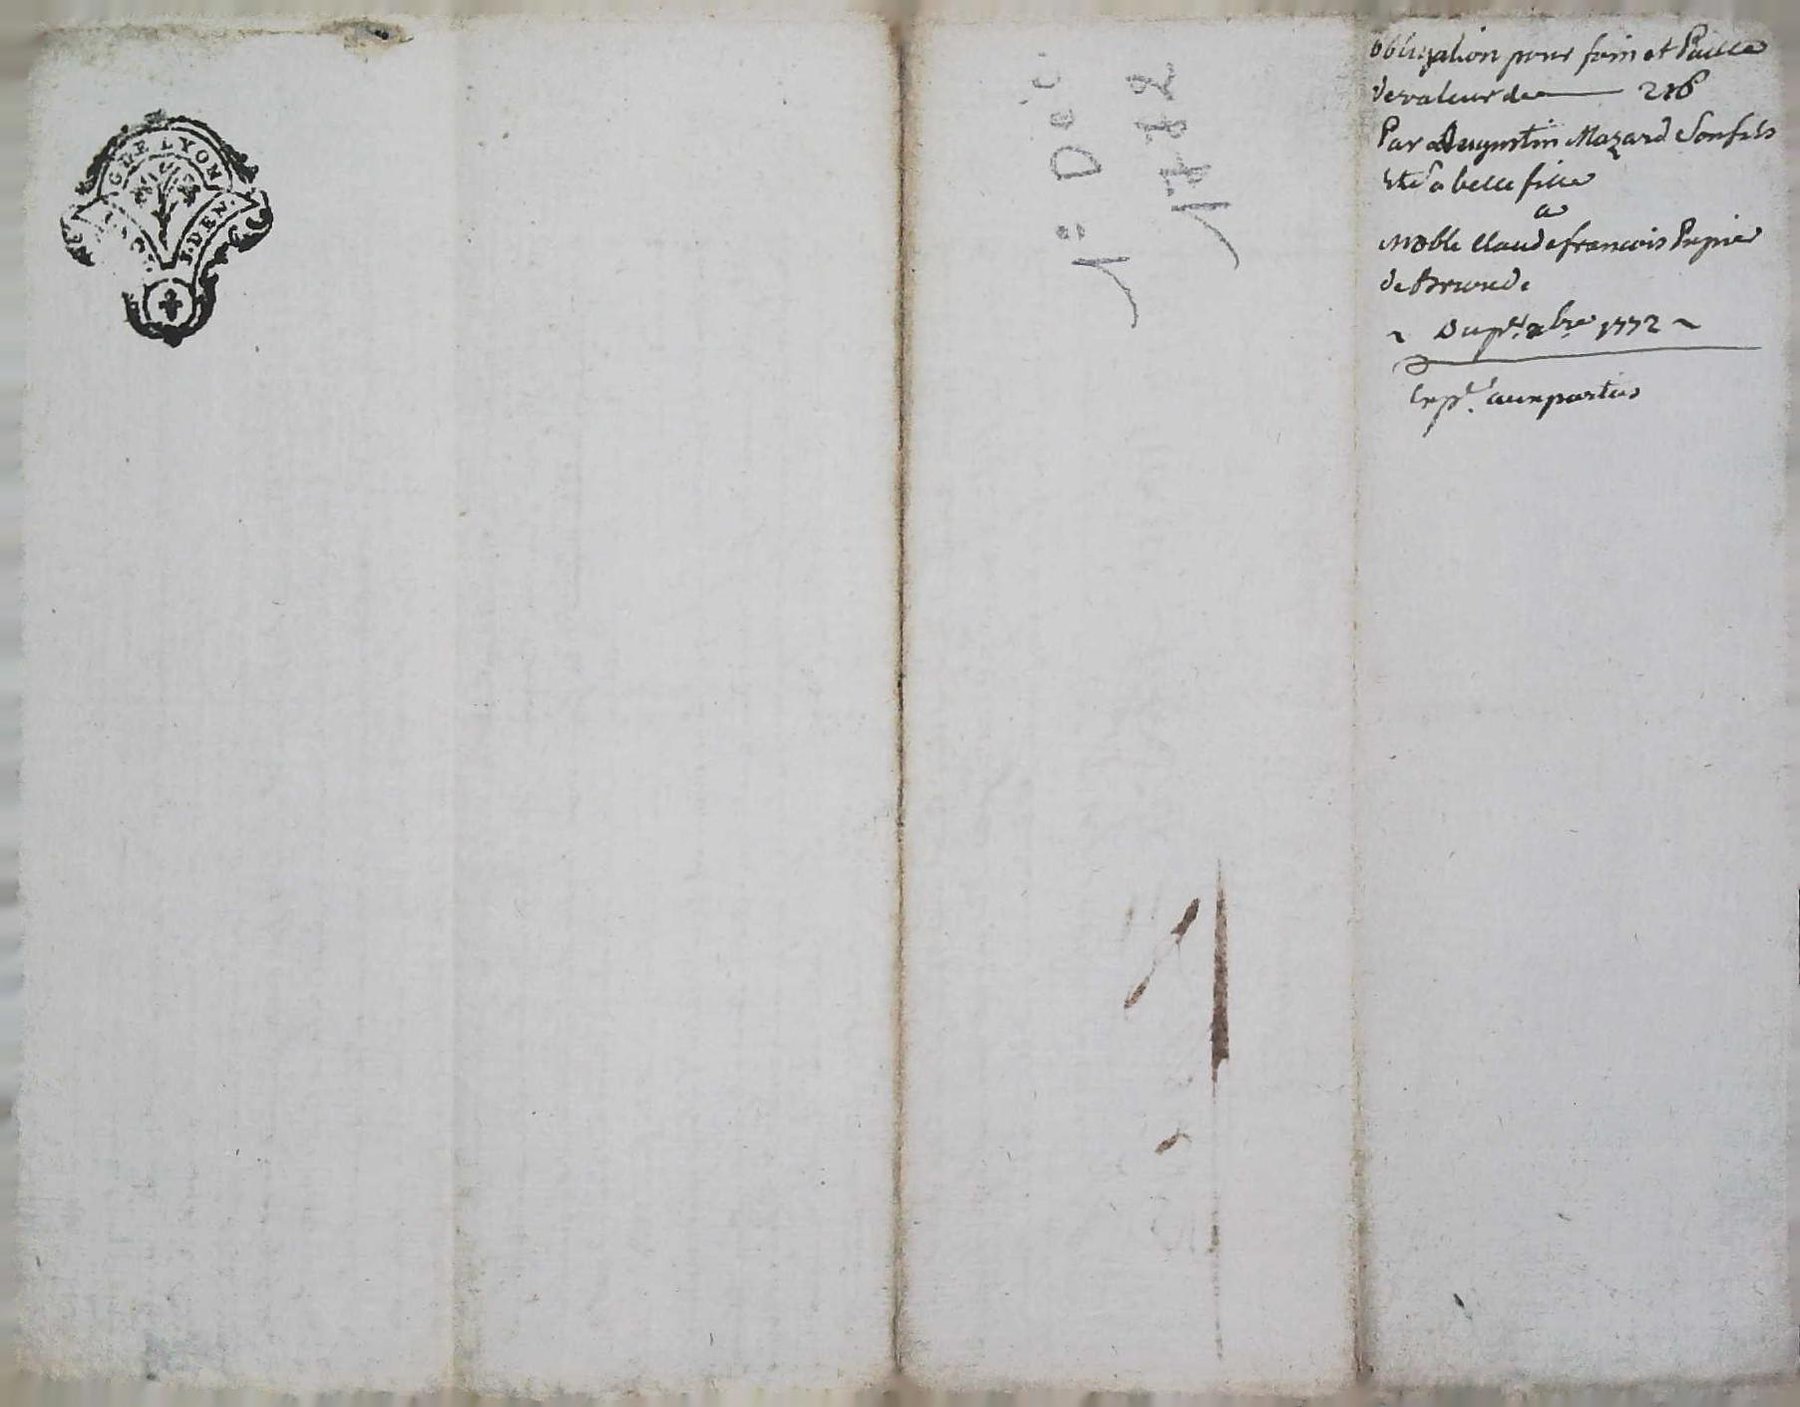 G. DE LYON
DEN.
1er Déc.
1772
obligation pour foin et Paille
de valeur de —— 216
Par Augustin Mazard Son fils
et Sa belle fille
a
Noble Claude francois Pupier
de Brioude
~ Du pr. xbre 1772 ~
Exp. aux parties